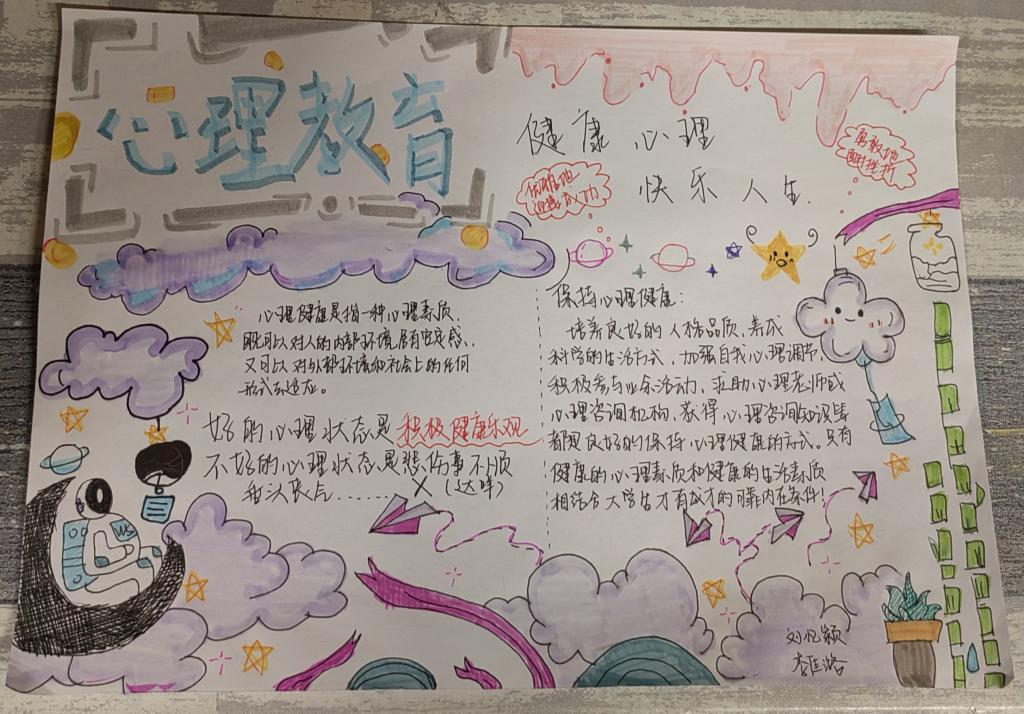 心理教育
健康心理
快乐人生
勇敢地
面对挫折
迎接成功
心理健康是指一种心理素质,
既可以对人的内部环境居有安定感,
又可以对外部环境和社会上的任何
形式去适应。
好的心理状态是积极健康乐观
不好的心理状态是悲伤事不顺
垂头丧气........×(这样)
保持心理健康:
培养良好的人格品质,养成
科学的生活方式,加强自我心理调节,
积极参与业余活动,求助心理老师或
心理咨询机构,获得心理咨询知识等
都是良好的保持心理健康的方式。只有
健康的心理素质和健康的生活素质
相结合大学生才有成才的可靠内在条件!
WS